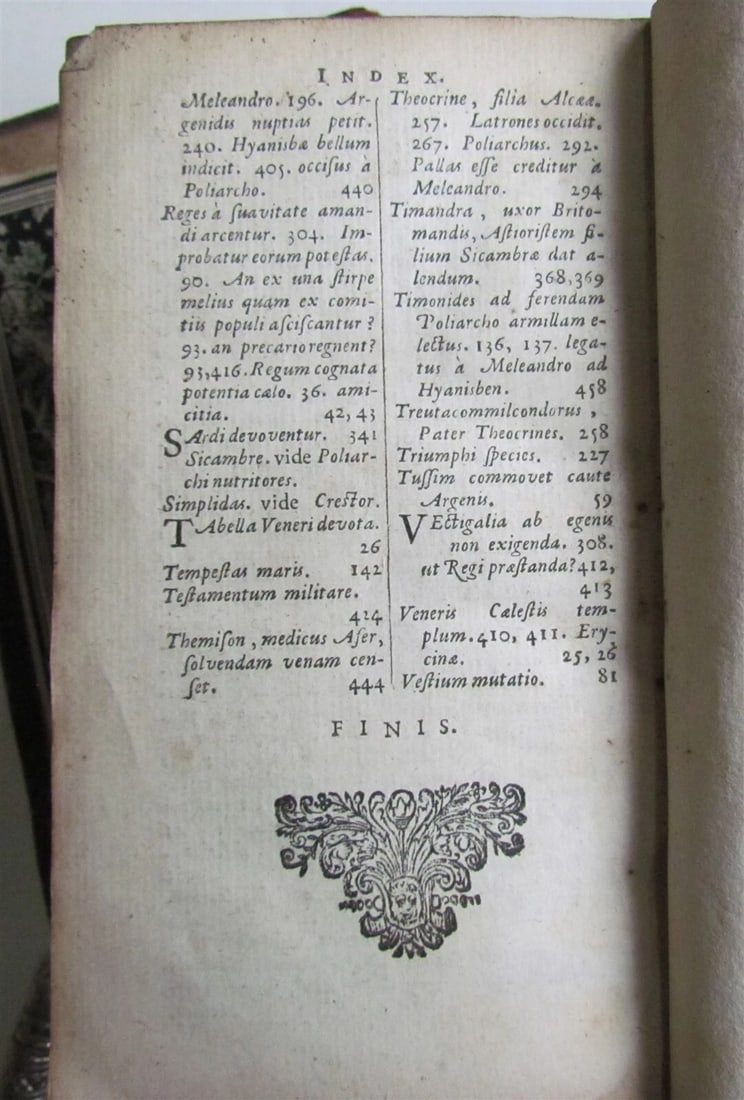 INDEX.
Meleandro. 196. Ar-
genidis nuptias petit.
240. Hyanisbæ bellum
indicit. 405. occiſus à
Poliarcho. 440
Reges à ſuavitate aman-
di arcentur. 304. Im-
probatur eorum poteſtas.
90. An ex una ſtirpe
melius quam ex comi-
tiis populi aſciſcantur?
93. an precario regnent?
93,416. Regum cognata
potentia cælo. 36. ami-
citia. 42, 43
SArdi devoventur. 341
Sicambre. vide Poliar-
chi nutritores.
Simplidas. vide Creſtor.
TAbella Veneri devota.
26
Tempeſtas maris. 142
Teſtamentum militare.
424
Themiſon, medicus Afer,
ſolvendam venam cen-
ſet. 444
Theocrine, filia Alcææ.
257. Latrones occidit.
267. Poliarchus. 292.
Pallas eſſe creditur à
Meleandro. 294
Timandra, uxor Brito-
mandis, Aſtioriſtem fi-
lium Sicambræ dat a-
lendum. 368,369
Timonides ad ferendam
Poliarcho armillam e-
lectus. 136, 137. lega-
tus à Meleandro ad
Hyanisben. 458
Treutacommilcondorus,
Pater Theocrines. 258
Triumphi ſpecies. 227
Tuſſim commovet caute
Argenis. 59
VEctigalia ab egenis
non exigenda. 308.
ut Regi præſtanda? 412,
413
Veneris Cæleſtis tem-
plum. 410, 411. Ery-
cinæ. 25, 26
Veſtium mutatio. 81
FINIS.